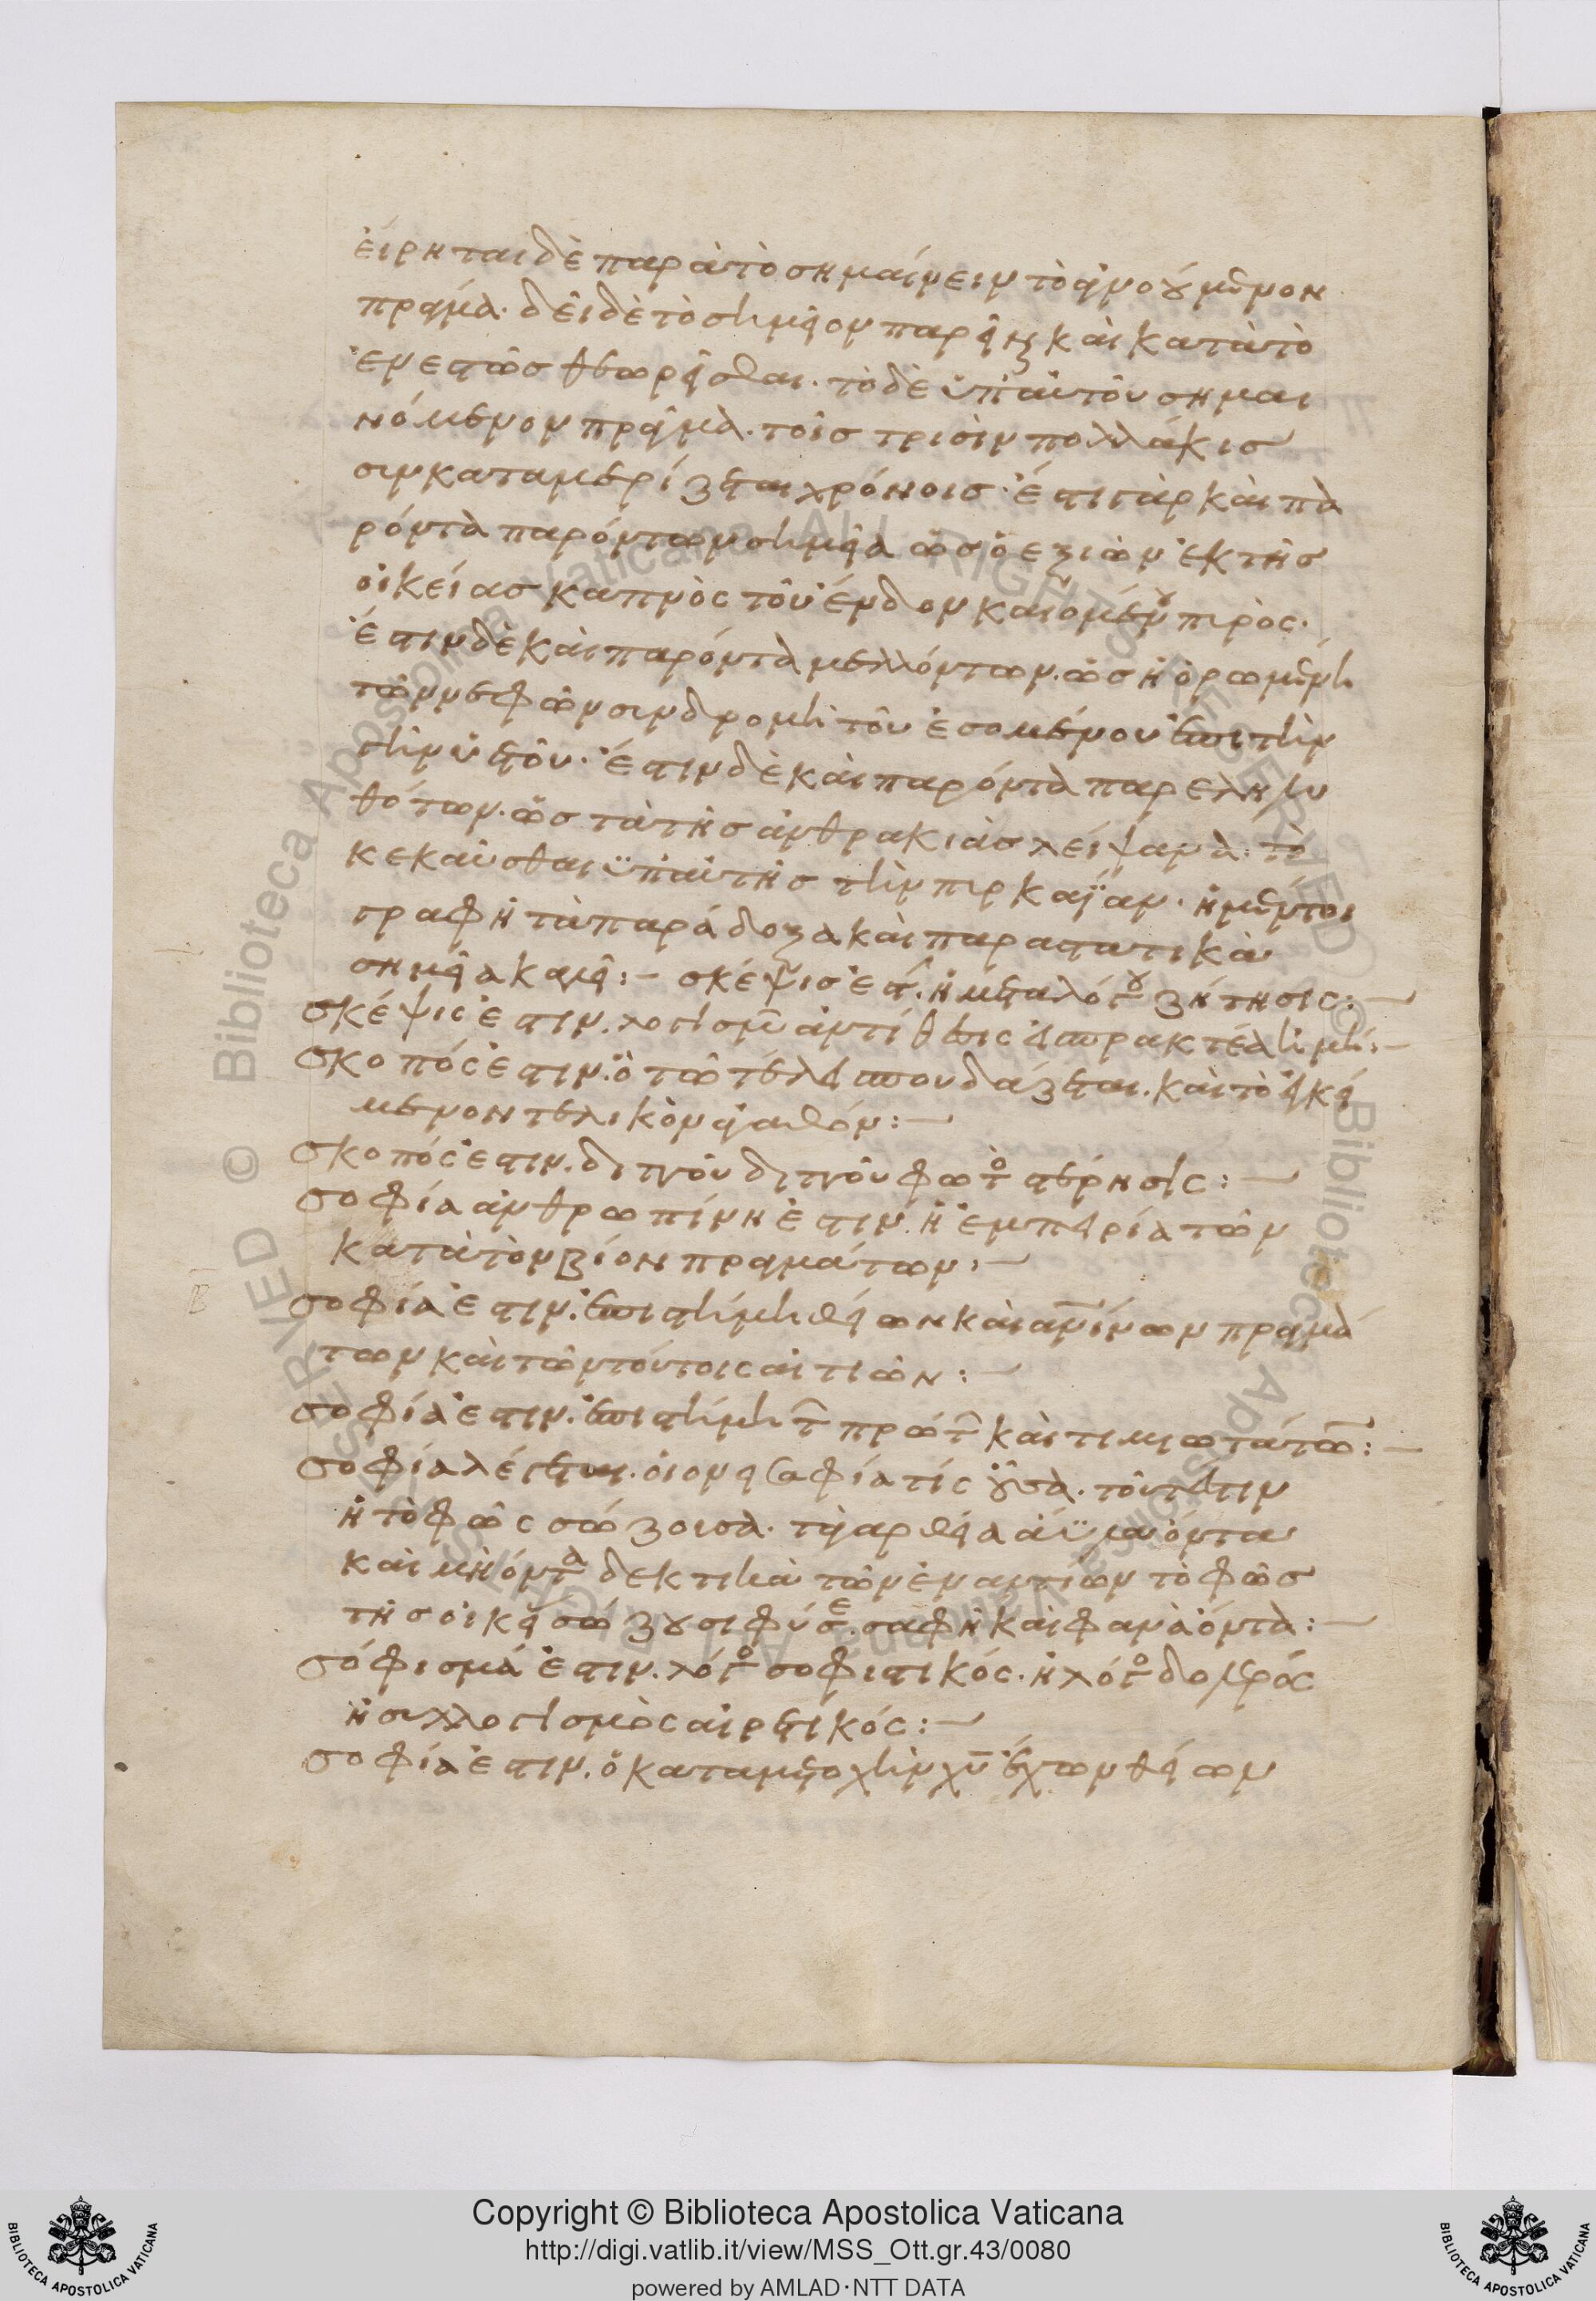 εἴρηται δὲ παρὰ τὸ σημαίνειν τὸ ἀγνοούμενον
πράγμα. δεῖ δὲ τὸ σημεῖον παρεῖναι καὶ κατὰ τὸ
ἐνεστῶσ θεωρεῖσθαι. τὸ δὲ ὑπ' αὐτοῦ σημαι
νόμενον πρᾶγμα. τοῖσ τρισὶν πολλάκισ
συγκαταμερίζεται χρόνοισ. ἔστι γὰρ καὶ πα
ρόντα παρόντων σημεῖα ὡσ ὁ ἐξιὼν ἐκ τῆσ
οἰκείασ καπνὸς τοῦ ἔνδον καιομένου πυρὸς.
ἔστιν δὲ καὶ παρόντα μελλόντων. ὡσ ἡ ὁρωμένη
τῶν νεφῶν συνδρομὴ τοῦ ἐσομένου ἐπὶ τὴν
γὴν ὑετοῦ. ἔστιν δὲ καὶ παρόντα παρεληλυ
θότων. ὡσ τὰ τῆσ ἀνθρακιᾶσ λείψανα. τὸ
κεκαῦσθαι ὑπ' αὐτῆσ τὴν πυρκαϊάν. ἡ μέντοι
γραφὴ τὰ παράδοξα καὶ παραστατικὰ
σημεῖα καλεῖ:- σκέψισ ἐστὶν ἡ μεγάλου ζήτησις:-
σκέψις ἐστιν. λογισμῶν ἀντίθεσις εἰ πρακτέα ἢ μή:-
σκοπός ἐστιν. ὃ τῶ τέλει σπουδάζεται. καὶ τὸ ἐκεί
μενον τελικὸν ἀγαθόν:-
σκοπός ἐστιν. δεινοῦ δεινοῦ φωτὸς στέρησίς:-
σοφία ἀνθρωπίνη ἐστιν. ἡ ἐμπειρία τῶν
κατὰ τὸν βίον πραγμάτων:-
σοφία ἐστιν. ἐπιστήμη θείων καὶ ἀνθρωπίνων πραγμά
των καὶ τῶν τούτοις αἰτιῶν:-
σοφία ἐστιν. ἐπιστήμη τῶν πρώτων καὶ τιμιωτάτων:-
σοφία λέγεται. οἱονεὶ σαφία τίς οὖσα. τουτέστιν
ἡ τὸ φῶς σώζουσα. τὰ γὰρ θεῖα ἀΰλα ὄντα
καὶ μὴ ὄντα δεκτικὰ τῶν ἐναντίων τὸ φῶσ
τῆσ οἰκείας σώζουσι φύσεως. σαφῆ καὶ φανὰ ὄντα:-
σόφισμά ἐστιν. λόγος σοφιστικός. ἢ λόγος δολερός
ἢ συλλογισμὸς αἱρετικός:-
σοφία ἐστιν. ὁ κατὰ μετοχὴν χυ ἔχων θείων
Copyright © Biblioteca Apostolica Vaticana
http://digi.vatlib.it/view/MSS_Ott.gr.43/0080
powered by AMLAD·NTT DATA